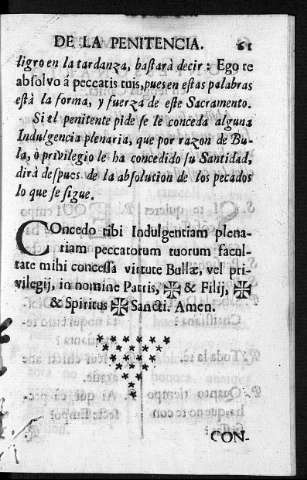 DE LA PENITENCIA. 61
ligro en la tardanza, bastarà decir: Ego te
absolvo á peccatis tuis, pues en estas palabras
està la forma, y fuerza de este Sacramento.
Si el penitente pide se le conceda alguna
Indulgencia plenaria, que por razon de Bu-
la, ò privilegio le ha concedido su Santidad,
dirà despues de la absolution de los pecados
lo que se sigue.
COncedo tibi Indulgentiam plena-
riam peccatorum tuorum facul-
tate mihi concessa virtute Bullæ, vel pri-
vilegij, in nomine Patris, ✠ & Filij, ✠
& Spiritus ✠ Sancti. Amen.
CON-